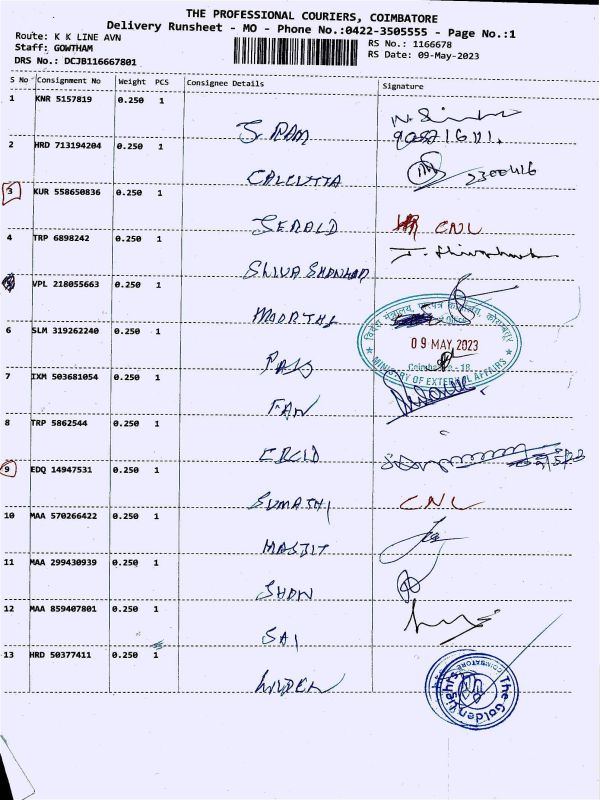 THE PROFESSIONAL COURIERS, COIMBATORE
Delivery Runsheet - MO - Phone No.:0422-3505555 - Page No.:1
Route: K K LINE AVN
RS No.: 1166678
Staff: GOWTHAM
RS Date: 09-May-2023
DRS No.: DCJB116667801
S No Consignment No Weight PCS Consignee Details Signature
1 KNR 5157819 0.250 1
S. RAM
2 HRD 713194204 0.250 1
CALCUTTA
3 KUR 558650836 0.250 1
JERALD CNL
4 TRP 6898242 0.250 1
SHIVA SHANHAR
VPL 218055663 0.250 1
MOORTHI
6 SLM 319262240 0.250 1
09 MAY 2023
PASS
MINISTRY OF EXTERNAL AFFAIRS
7 IXM 503681054 0.250 1
FAN
8 TRP 5862544 0.250 1
9 EDQ 14947531 0.250 1
SUMATHI CNL
10 MAA 570266422 0.250 1
MASJIT
11 MAA 299430939 0.250 1
12 MAA 859407801 0.250 1
SAI
13 HRD 50377411 0.250 1
The Golden Lights
COIMBATORE